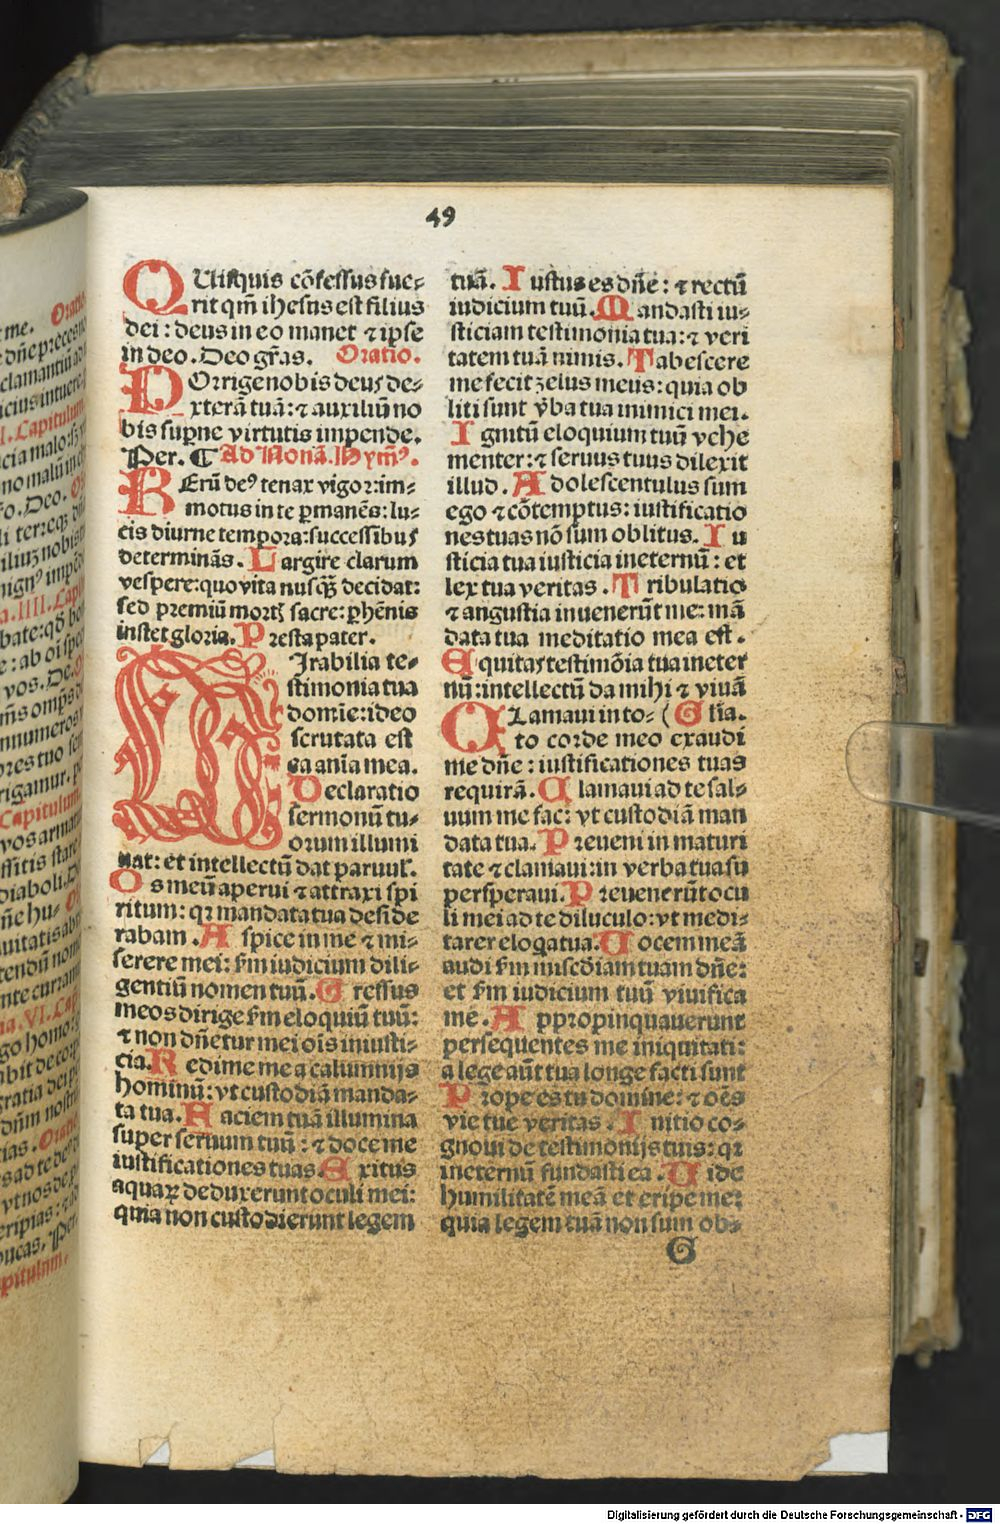 49
QUisquis cõfessus fue-
rit qm̃ ihesus est filius
dei : deus in eo manet ⁊ ipse
in deo. Deo gr̃as. Oratio.
POrrige nobis deus de-
xterã tuã: ⁊ auxiliũ no
bis sup̱ne virtutis impende.
Per. ¶ Ad Nonã. Hymꝰ.
RErũ deꝰ tenax vigor: im-
motus in te p̱manẽs: lu-
cis diurne tempora: successibus
determinãs. Largire clarum
vespere: quo vita nusqꝫ̃ decidat:
sed premiũ mortꝭ sacre: p̱hẽnis
instet gloria. Presta pater.
MIrabilia te-
stimonia tua
domĩe: ideo
scrutata est
ea ani̅a mea.
Declaratio
sermonũ tu-
orum illumi
nat: et intellectũ dat paruul̕.
Os meũ aperui ⁊ attraxi spi
ritum: qꝛ mandata tua deside
rabam. Aspice in me ⁊ mi-
serere mei: s̃m iudicium dili-
gentiũ nomen tuũ. Gressus
meos dirige s̃m eloquiũ tuũ:
⁊ non dñetur mei oi̅s iniusti-
cia. Redime me a calumnijs
hominũ: vt custodiã manda-
ta tua. Faciem tuã illumina
super seruum tuũ: ⁊ doce me
iustificationes tuas. Exitus
aquaꝝ deduxerunt oculi mei:
quia non custodierunt legem
tuã. Iustus es dñe: ⁊ rectũ
iudicium tuũ. Mandasti iu-
sticiam testimonia tua: ⁊ veri
tatem tuã nimis. Tabescere
me fecit zelus meus: quia ob
liti sunt v̕ba tua inimici mei.
Ignitũ eloquium tuũ vehe
menter: ⁊ seruus tuus dilexit
illud. Adolescentulus sum
ego ⁊ cõtemptus: iustificatio
nes tuas nõ sum oblitus. Iu
sticia tua iusticia ineternũ: et
lex tua veritas. Tribulatio
⁊ angustia inuenerũt me: mã
data tua meditatio mea est.
Equitas testimõia tua ineter
nũ: intellectũ da mihi ⁊ viuã
CLamaui in to- ( Gl̃ia.
to corde meo exaudi
me dñe: iustificationes tuas
requirã. Clamaui ad te sal-
uum me fac: vt custodiã man
data tua. Preueni in maturi
tate ⁊ clamaui: in verba tua su
persperaui. Preuenerũt ocu
li mei ad te diluculo: vt medi-
tarer eloqa tua. Uocem meã
audi s̃m mise̅diam tuam dñe:
et s̃m iudicium tuũ viuifica
me. Appropinquauerunt
persequentes me iniquitati:
a lege aũt tua longe facti sunt
Prope es tu domine: ⁊ oẽs
vie tue veritas. Initio co-
gnoui de testimonijs tuis: qꝛ
ineternũ fundasti ea. Uide
humilitatẽ meã et eripe me:
quia legem tuã non sum ob-
G
Digitalisierung gefördert durch die Deutsche Forschungsgemeinschaft - DFG